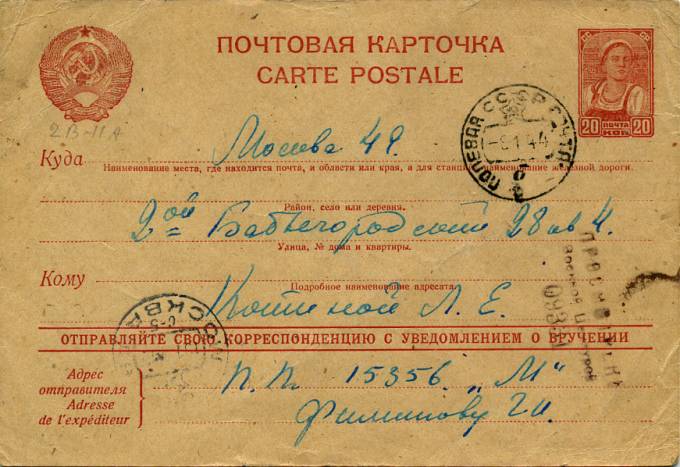 ПОЧТОВАЯ КАРТОЧКА
CARTE POSTALE
20 ПОЧТА КОП. 20
ПОЛЕВАЯ ПОЧТА
СССР
-9.1.44
2В-11А
Куда Москва 49.
Наименование места, где находится почта, и области или края, а для станций наименование железной дороги.
Район, село или деревня.
2ой Бабьегородский 28 кв 4.
Улица, № дома и квартиры.
Кому
Подробное наименование адресата.
Котиной Л. Е.
ПРОСМОТРЕНО
Военной Цензурой
МОСКВА
ОТПРАВЛЯЙТЕ СВОЮ КОРРЕСПОНДЕНЦИЮ С УВЕДОМЛЕНИЕМ О ВРУЧЕНИИ
Адрес
отправителя
Adresse
de l'expéditeur
П.П. 15356 „М"